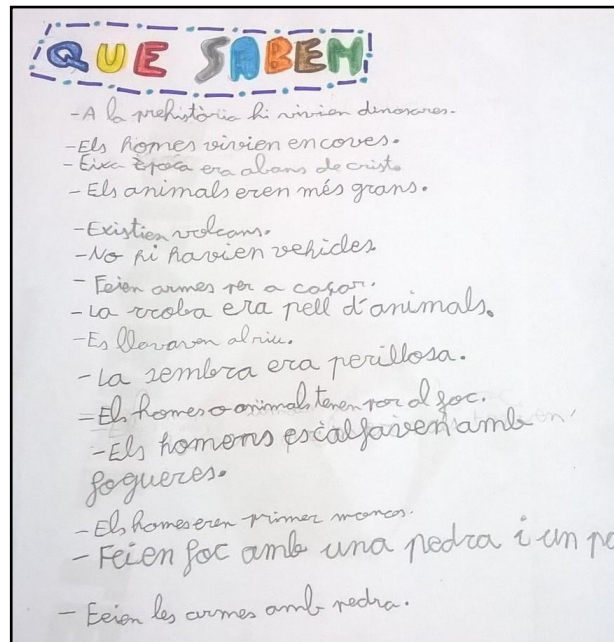 QUE SABEM
-A la prehistòria hi vivien dinosares.
-Els homes vivien en coves.
-Eixa època era abans de cristo
-Els animals eren més grans.
-Existien volcans.
-No hi havien vehicles
-Feien armes per a caçar.
-La rroba era pell d'animals.
-Es llavaven al riu.
-La sembra era perillosa.
-Els homes o animals tenen por al foc.
-Els homens escalfaven amb
fogueres.
-Els homes eren primer monos.
-Feien foc amb una pedra i un pa
-Feien les armes amb pedra.